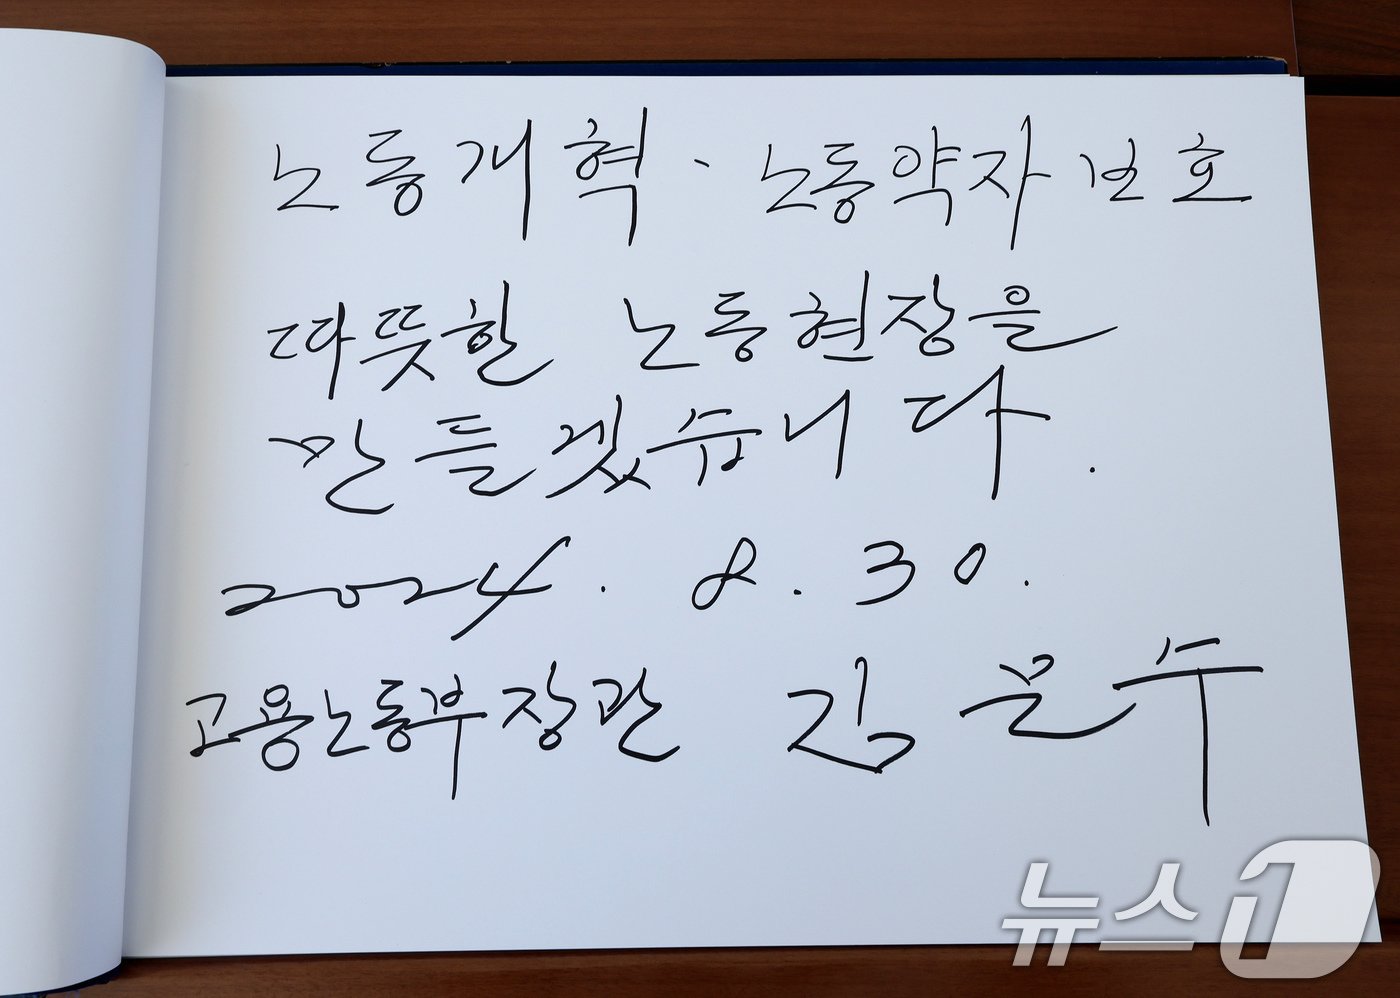 노동개혁 · 노동약자 보호
따뜻한 노동현장을
만들겠습니다.
2024. 8. 30.
고용노동부장관 김문수
뉴스1